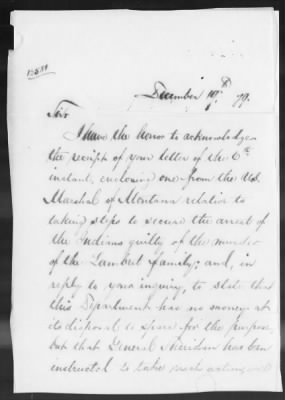 December 19th 79.
Sir
I have the honor to acknowledge
the receipt of your letter of the 6th
instant, enclosing one from the U.S.
Marshal of Montana relation to
taking steps to secure the arrest of
the Indians guilty of the murder
of the Lambert family; and, in
reply to your inquiry, to state that
this Department has no money at
its disposal to spare for the purpose,
but that General Sheridan has been
instructed to take such action